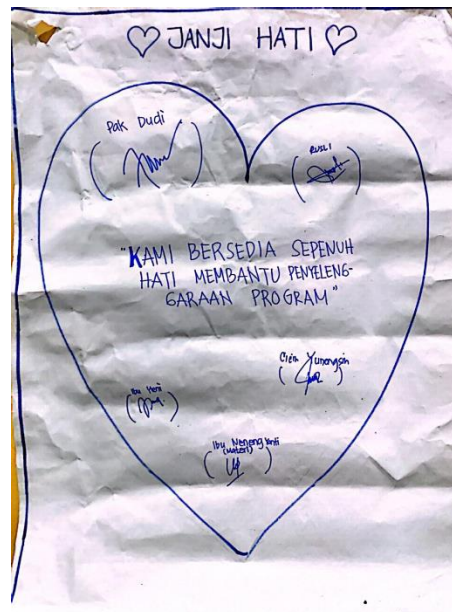 ♡ JANJI HATI ♡
Pak Dudi
RUSLI
"KAMI BERSEDIA SEPENUH
HATI MEMBANTU PENYELENG-
GARAAN PROGRAM"
Yunengsih
Ibu Heni
Ibu Neneng Yanti
(Materi)